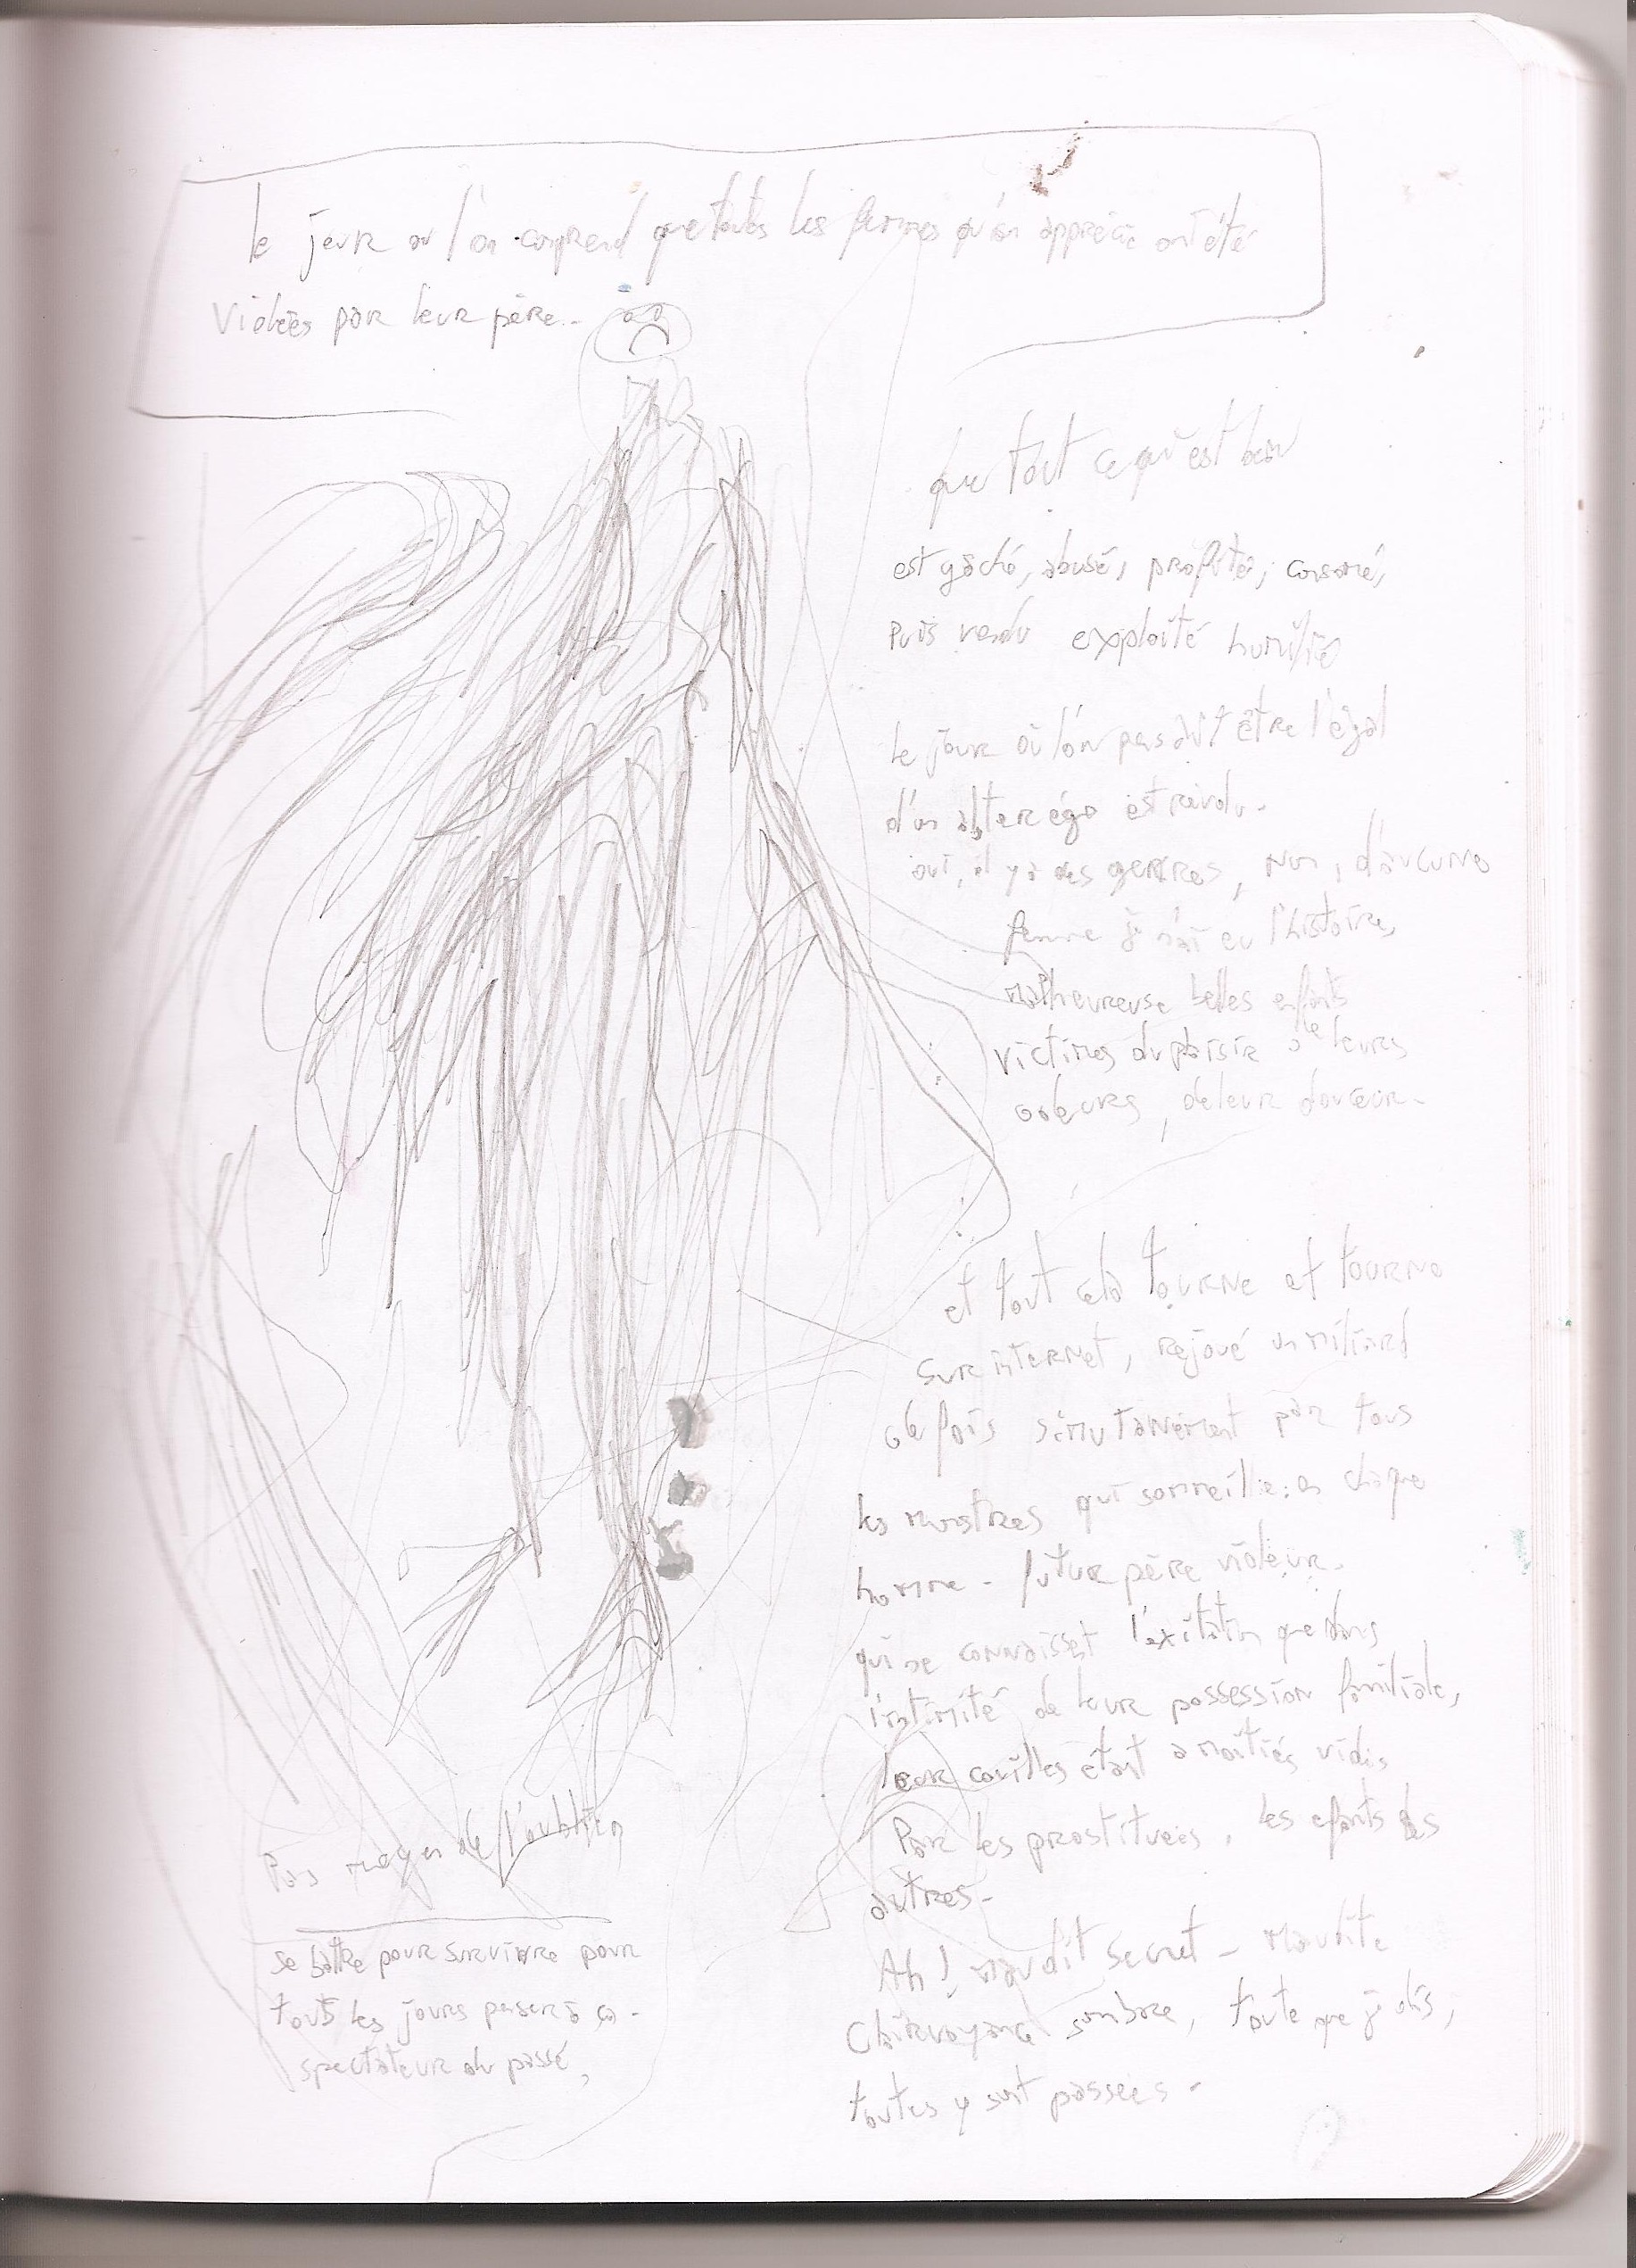 le jour ou l'on comprend que toutes les femmes qu'on apprécie ont été
violées par leur père..
que tout ce qui est beau
est gâché, abusé, profité, consomé,
puis vendu exploité humilié
le jour où l'on pensait être l'égal
d'un alter égo est révolu.
oui, il y a des genres, non, d'aucune
femme je n'ai eu l'histoire,
malheureuse belles enfants
victimes du plaisir de leurs
odeurs, de leur douceur.
et tout cela tourne et tourne
sur internet, rejoué un miliard
de fois simutanément par tous
les monstres qui someille en chaque
homme - futur père violeur.
qui ne connaisset l'exitation que dans
l'intimité de leur possession familiale,
leur couilles étant a moitiés vidés
Par les prostituées, les efants des
autres-
Ah! maudit secret - maudite
Clairvoyance sombre, toute que je dis,
toutes y sont passées -
Pas moyen de l'oublier
se battre pour survivre pour
touts les jours penser à ça -
spectateur du passé,